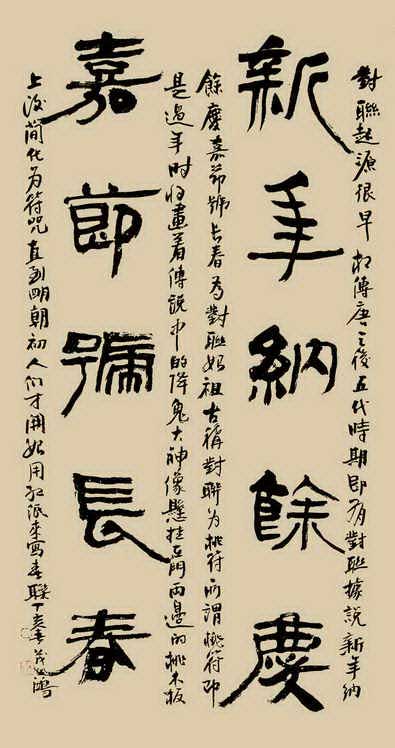 對聯起源很早相傳唐之後五代時期即有對聯據說新年納
新年納餘慶
餘慶嘉節號長春為對聯始祖古稱對聯為桃符所謂桃符即
是過年時将畫着傳說中的降鬼大神像懸挂在門兩邊的桃木板
嘉節號長春
上後簡化为符咒直到明朝初人们才開始用紅紙來寫春聯丁亥春